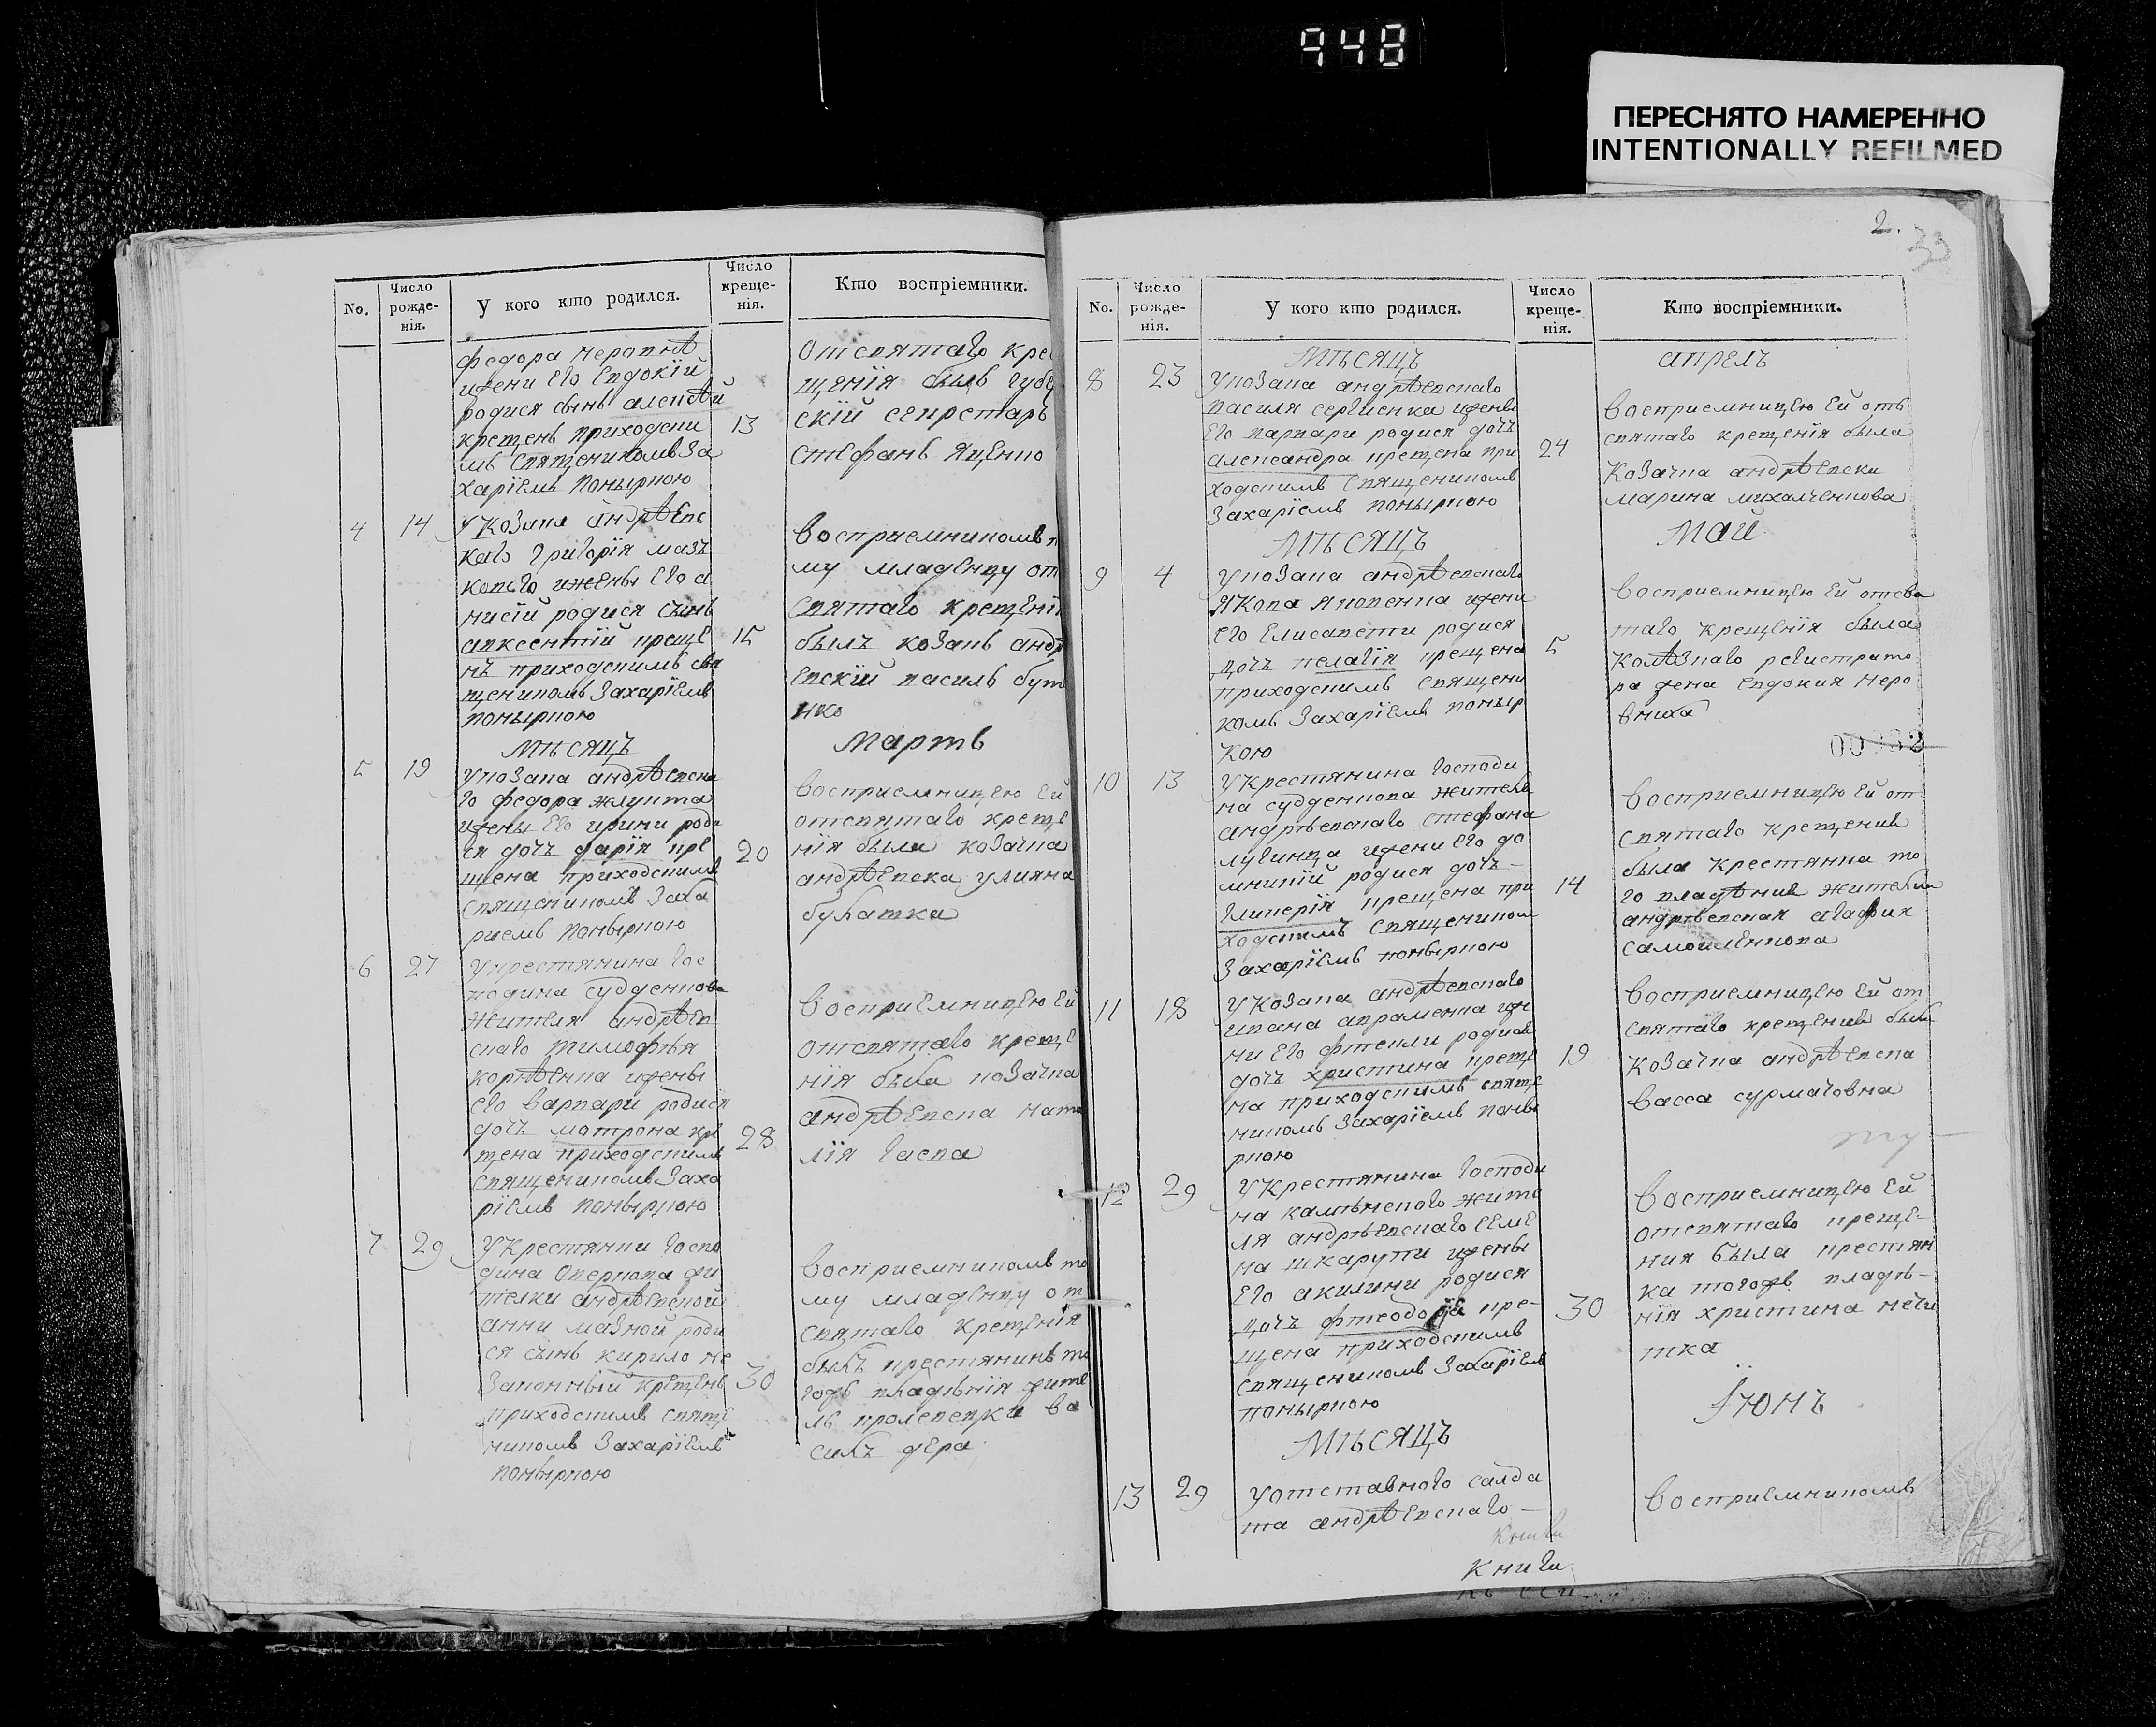 948
ПЕРЕСНЯТО НАМЕРЕННО
INTENTIONALLY REFILMED
No.
Число рожде-нія.
У кого кто родился.
Число креще-нія.
Кто воспріемники.
федора неровнѣ
ижени его Евдокїй
родися сынъ алеѯѣй
крещенъ приходски
мъ священикомъ За
харїемъ Коныркою
13
отсвятаго кре
щенїя былъ губе
скїй секретарь
стефанъ Яценко
4
14
У Козака андрѣевс
каго григорїя мазъ
его ижены его а
нисїй родися сынъ
авксентїй креще
нъ приходскимъ свя
щеникомъ Захарїемъ
коныркою
15
восприемникомъ
му младенцу от
святаго крещенї
былъ козакъ андр
евскїй василь бут
нко
мѣсяцъ
Мартъ
5
19
Укозака андрѣевска
го федора жлукта
ижены его ирини роди
ся дочъ дарїя кре
щена приходскимъ
священикомъ Заха
риемъ коныркою
20
восприемницею ей
отсвятаго креще
нїя была козачка
андрѣевска улияна
булатка
6
27
Укрестянина гос
подина судденкова
жителя андрѣев
скаго тимофѣя
корнѣенка ижены
его варвари родися
дочъ матрона кре
щена приходскимъ
священикомъ Заха
рїемъ коныркою
28
восприемницею ей
отсвятаго креще
нїя была козачка
андрѣевска ната
лїя гаева
7
29
Укрестянки госпо
дина оверкова жи
телки андрѣевской
анни мазной роди
ся сынъ кирило не
законный крещенъ
приходскимъ свяще
никомъ Захарїемъ
коныркою
30
восприемникомъ то
му младенцу от
святаго крещенїя
былъ крестянинъ то
гожъ владѣнїя жите
ль пролевевки ва
силъ дера
2.
33
No.
Число рожде-нія.
У кого кто родился.
Число креще-нія.
Кто воспріемники.
мѣсяцъ
апрелъ
8
23
Укозака андрѣевскаго
василя сергиенка ижены
его варвари родися дочъ
александра крещена при
ходскимъ священикомъ
Захарїемъ коныркою
24
восприемницею ей отъ
святаго крещенїя была
козачка андрѣевски
марина михалченкова
мѣсяцъ
Май
9
4
Укозака андрѣевскаго
Якова Яковенка ижени
его елисавети родися
дочъ пелагїя крещена
приходскимъ священи
комъ Захарїемъ коныр
кою
5
восприемницею ей отсвя
таго крещенїя была
колѣзкаго регистрато
ра жена Евдокия неро
вниха
10
13
Укрестянина господи
на судденкова жителя
андрѣевскаго стефана
лугинца ижени его до
мникїй родися дочъ
гликерїя крещена при
ходскимъ священиком
Захарїемъ коныркою
14
восприемницею ей от
святаго крещения
была крестянка то
го владѣния жителка
андрѣевская агафия
самойленкова
11
18
Укозака андрѣевскаго
ивана авраменка иже
ни его фтекли родися
дочъ христина креще
на приходскимъ свяще
никомъ Захарїемъ коны
ркою
19
восприемницею ей от
святаго крещения была
козачка андрѣевска
васса сурмаговна
12
29
Укрестянина господи
на камѣнского жите
ля андрѣевскаго семе
на шкарути ижены
его акилини родися
дочъ фтеодосїя кре-
щена приходскимъ
священикомъ Захарїемъ
коныркою
30
восприемницею ей
отсвятаго креще-
ния была крестян
ка тогожъ владѣ-
нїя христина нечи
тка
мѣсяцъ
Іюнъ
13
29
Уотставного салда
та андрѣевскаго
восприемникомъ
книги